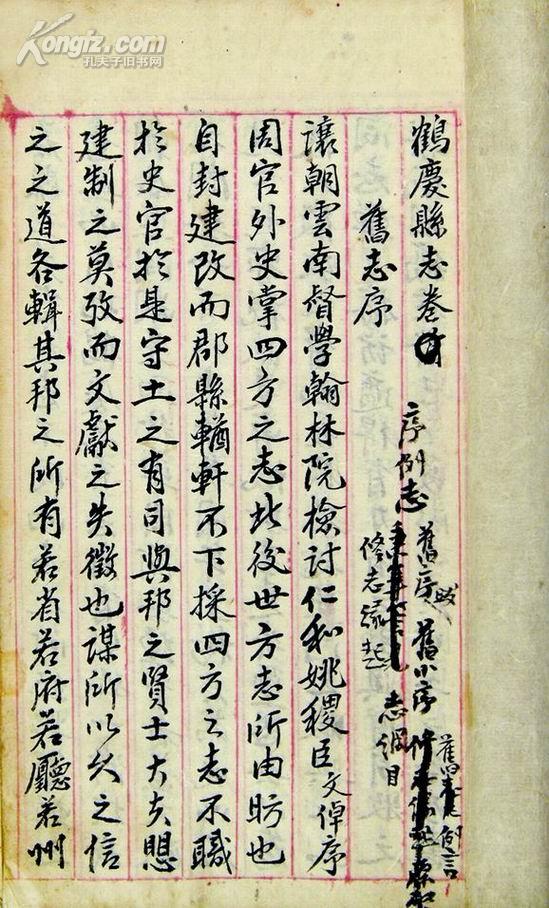 Kongfz.com
孔夫子旧书网
鶴慶縣志卷
序例志 舊序跋 舊小序
修志緣起 志綱目
舊志例言
舊志序
讓朝雲南督學翰林院檢討仁和姚稷臣文倬序
周官外史掌四方之志此後世方志所由昉也
自封建改而郡縣輶軒不下採四方之志不職
於史官於是守土之有司與邦之賢士大夫懇
建制之莫攷而文獻之失徵也謀所以久之信
之之道各輯其邦之所有若省若府若廳若州